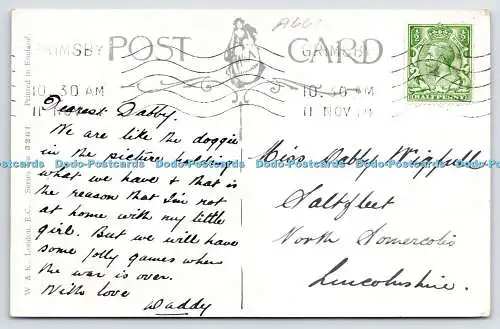 A661
GRIMSBY
POST CARD
GRIMSBY
10.30 AM
11 NOV 14
10.30 AM
11 NOV 14
HALFPENNY
Dearest Dabby.
We are like the doggie
in the picture, holding
what we have & that is
the reason that I'm not
at home with my little
girl. But we will have
some jolly games when
the war is over.
With love
Daddy
Miss Dabby
Saltfleet
North Somercotes
Lincolnshire.
W & K. London, E.C.
Printed in England.
Dodo-Postcards Dodo-Postcards Dodo-Postcards Dodo-Postcards